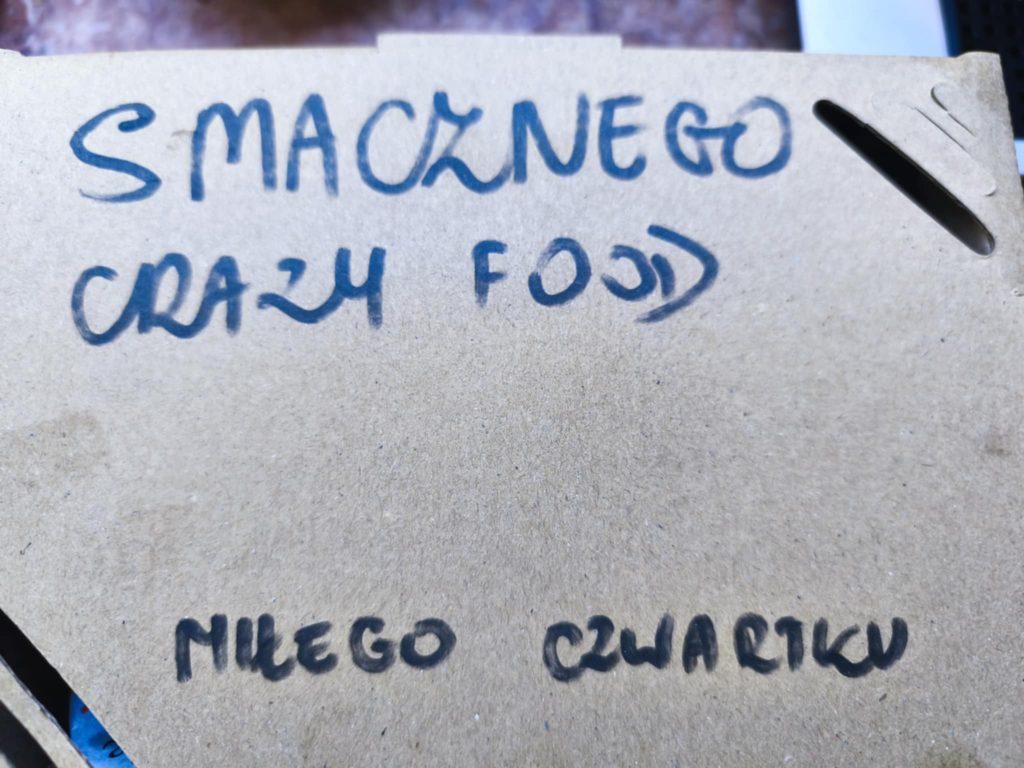 SMACZNEGO
CRAZY FOOD
MIŁEGO CZWARTKU